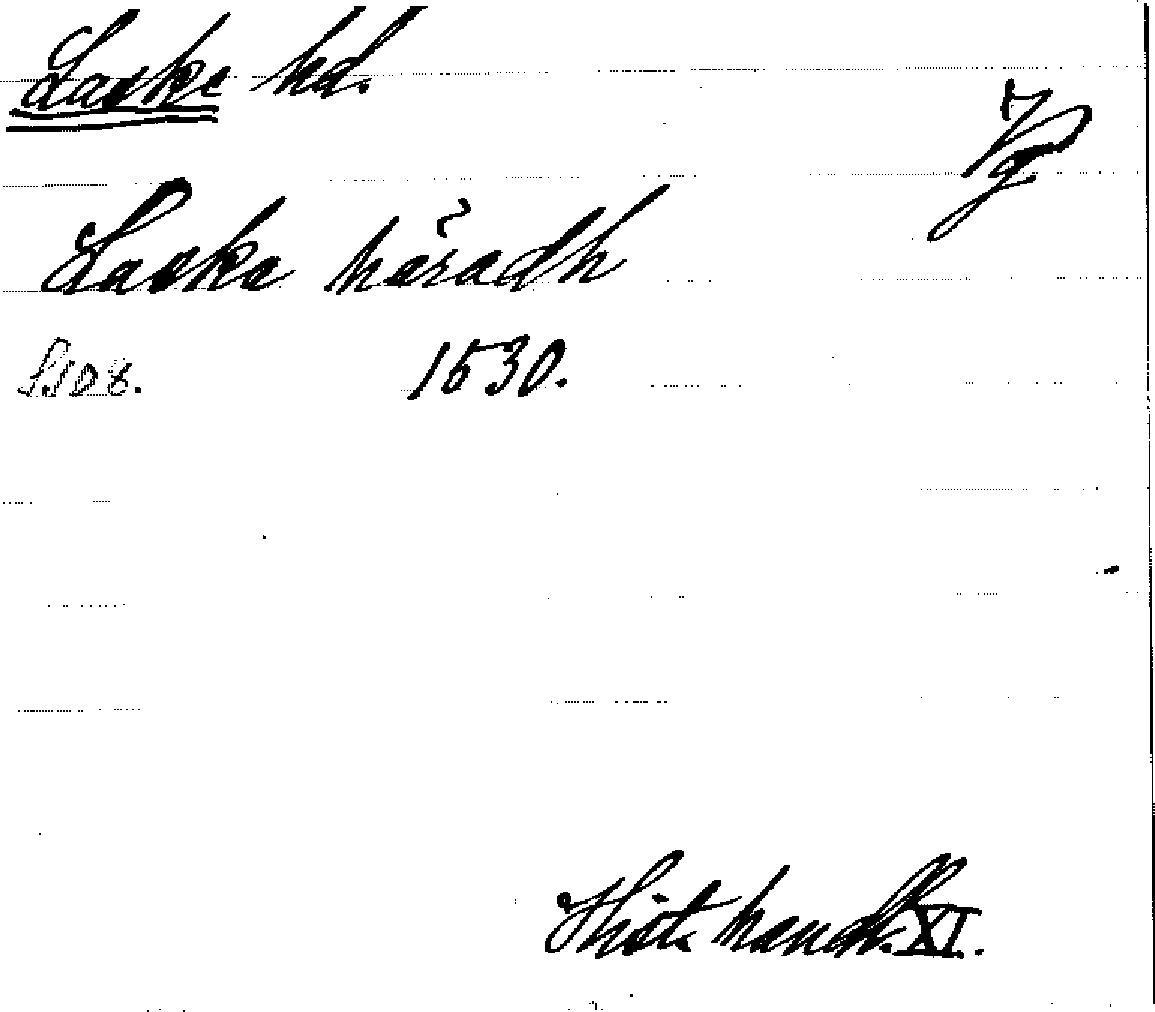 Laske hd.
Vg
Laske häradh
S.108. 1530.
Hist. handl. XI.